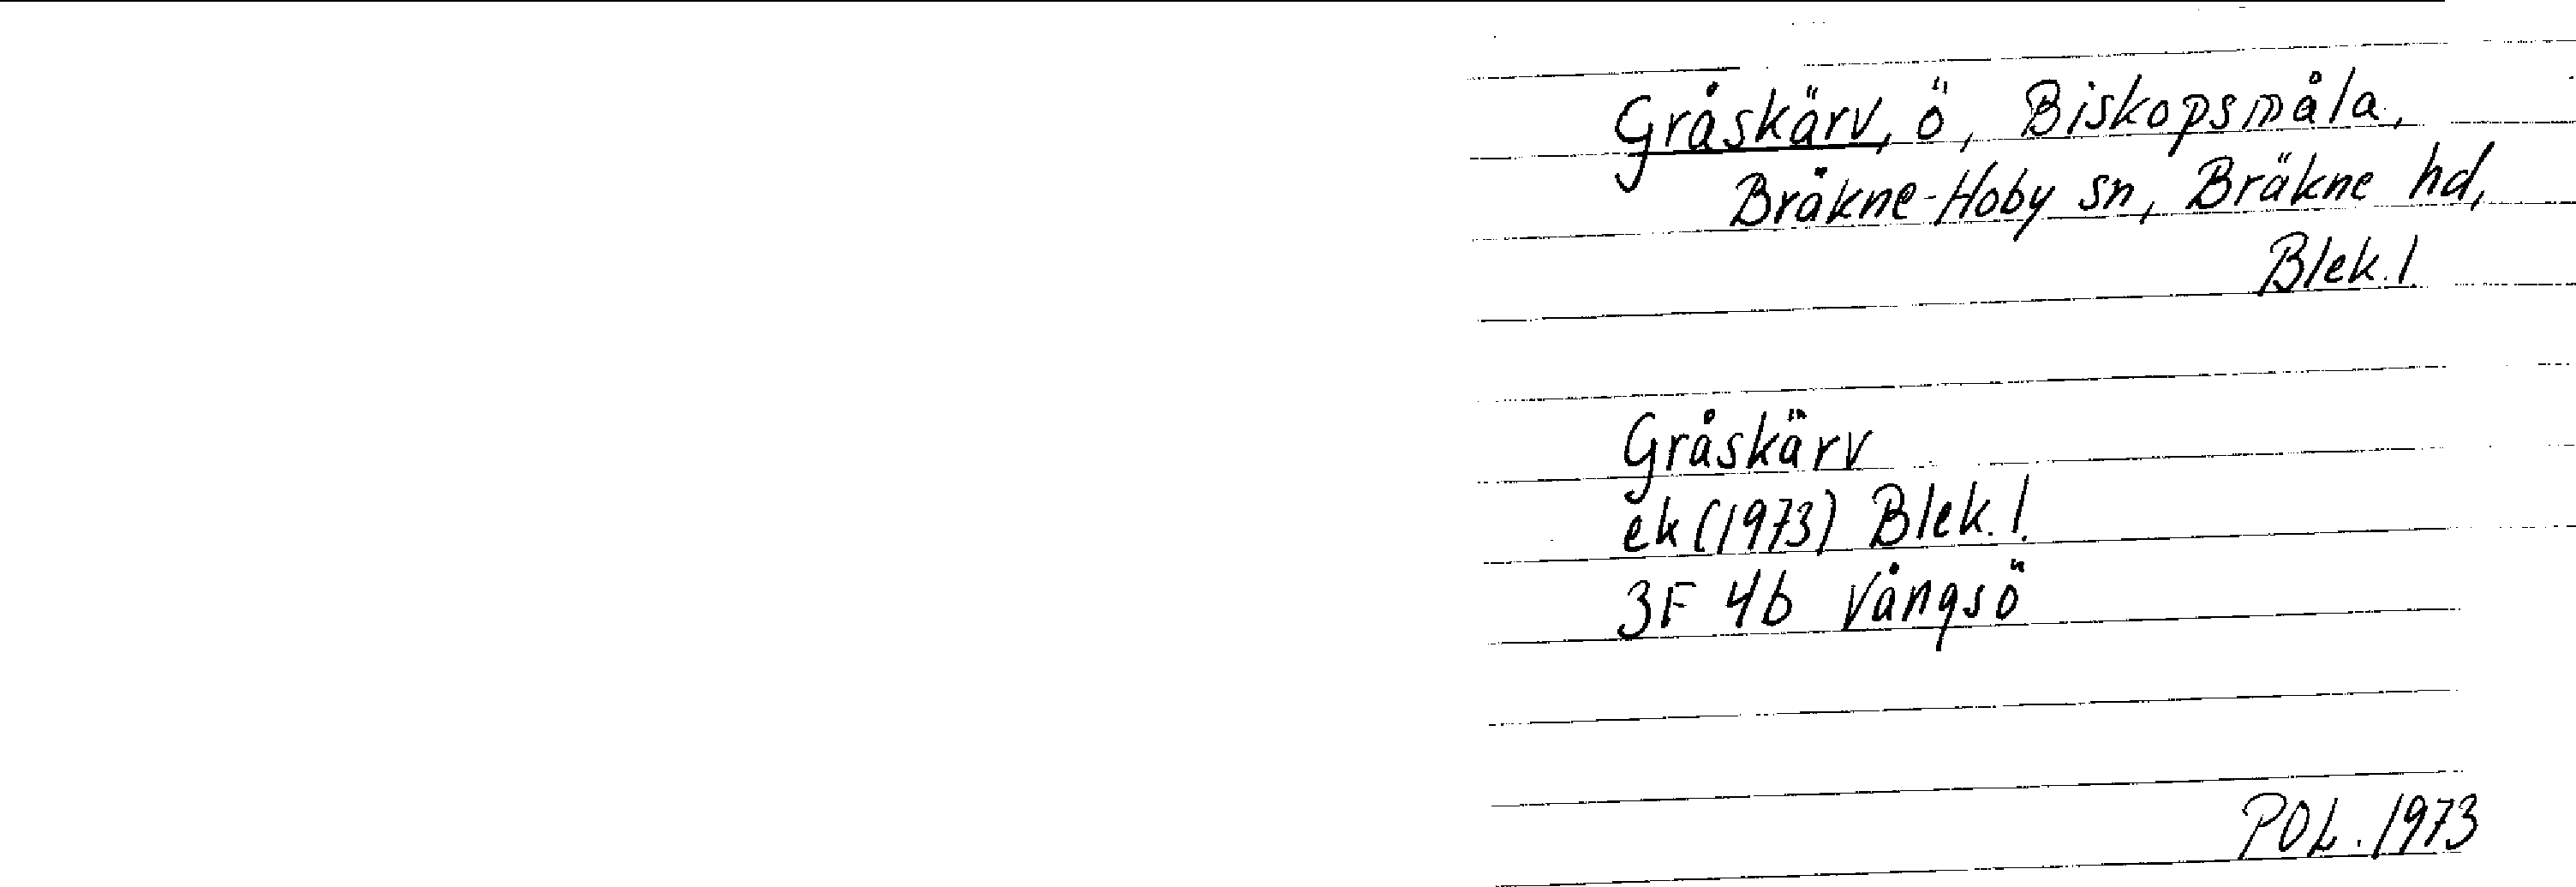 Gråskärv, ö, Biskopsmåla,
Bräkne-Hoby sn, Bräkne hd,
Blek. l.
Gråskärv
ek (1973) Blek. l.
3F 4b Vångsö
POL. 1973